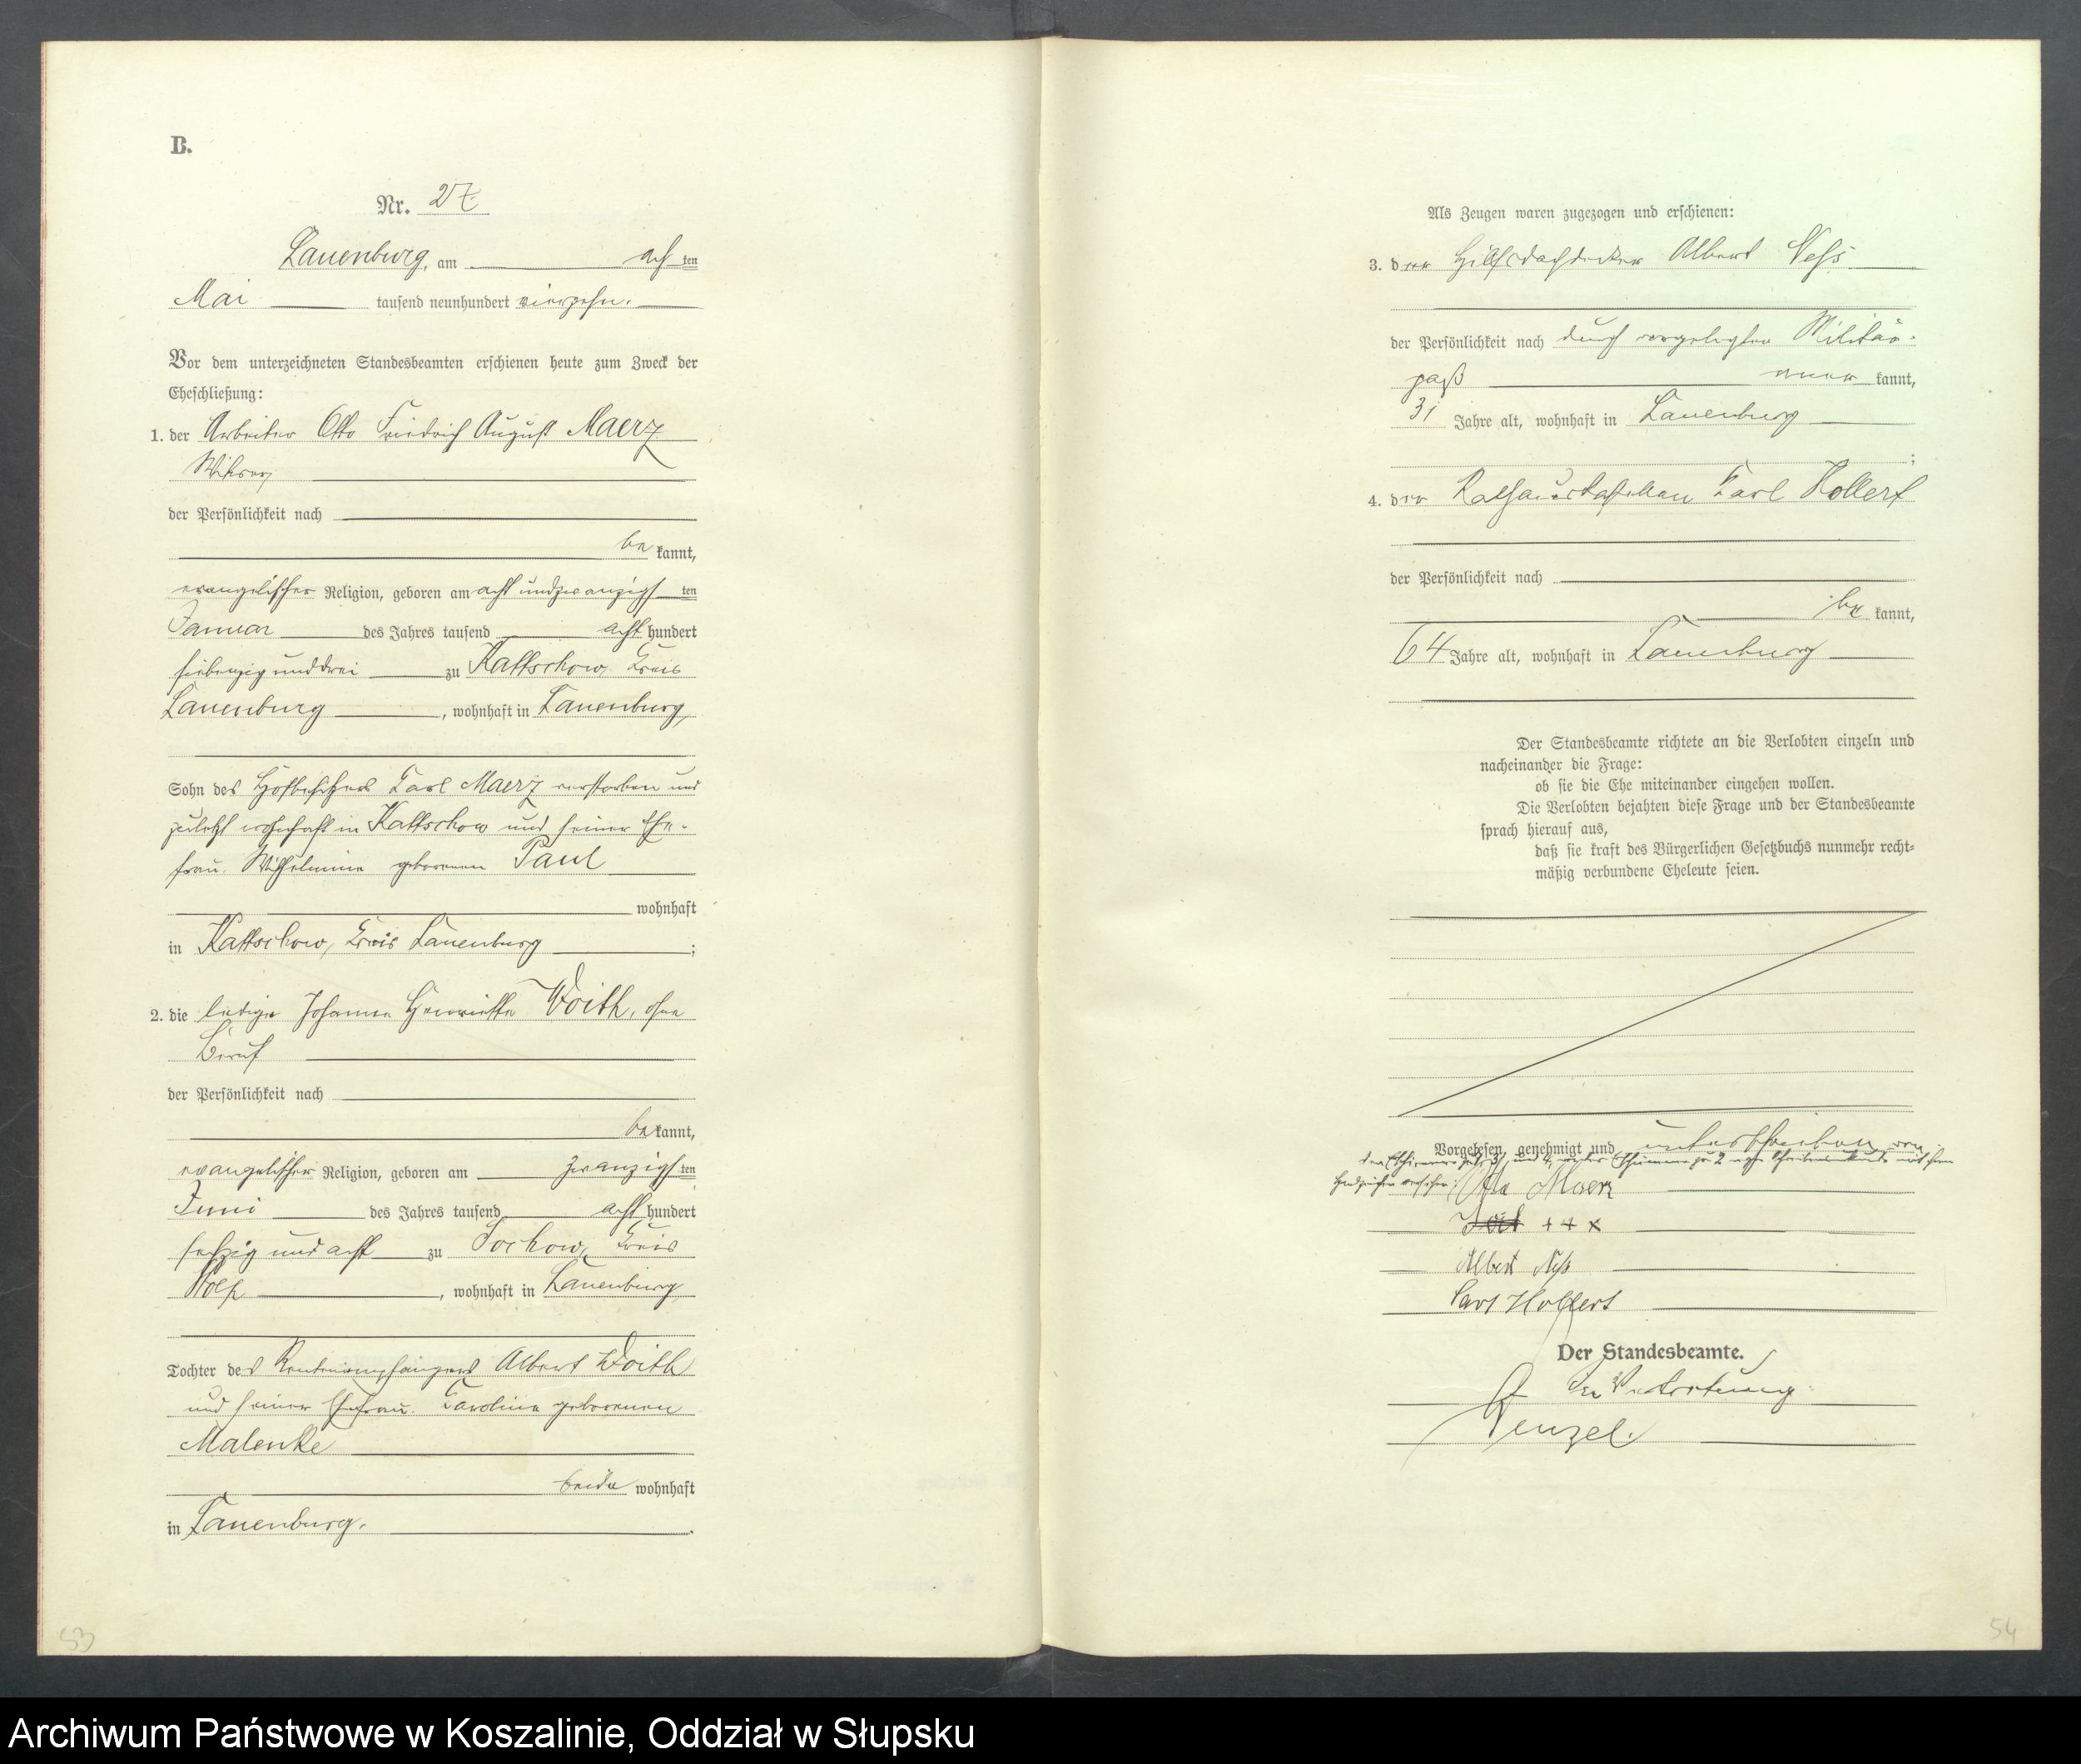 B.
Nr. 27
Lauenburg, am ach ten
Mai tausend neunhundert vierzehn.
Vor dem unterzeichneten Standesbeamten erschienen heute zum Zweck der
Eheschließung:
1. der Arbeiter Otto Friedrich August Maerz
Witwer
der Persönlichkeit nach
be kannt,
evangelischer Religion, geboren am acht und zwanzigs ten
Januar des Jahres tausend acht hundert
siebenzig und drei zu Kattschow, Kreis
Lauenburg, wohnhaft in Lauenburg,
Sohn des Hofbesitzers Karl Maerz verstorben und
zuletzt wohnhaft in Kattschow und seiner Ehe-
frau Wilhelmine geborenen Paul
wohnhaft
in Kattschow, Kreis Lauenburg;
2. die ledige Johanne Henriette Woith, ohne
Beruf
der Persönlichkeit nach
be kannt,
evangelischer Religion, geboren am zwanzigs ten
Juni des Jahres tausend acht hundert
sechzig und acht zu Sochow, Kreis
Stolp, wohnhaft in Lauenburg
Tochter des Rentenempfängers Albert Woith
und seiner Ehefrau Karoline geborenen
Malenke
beide wohnhaft
in Lauenburg.
53
Als Zeugen waren zugezogen und erschienen:
3. der Hilfsdachdecker Albert
der Persönlichkeit nach durch vorgelegten Militär-
paß aner kannt,
31 Jahre alt, wohnhaft in Lauenburg
;
4. der Rathauskastellan Karl
der Persönlichkeit nach
be kannt,
64 Jahre alt, wohnhaft in Lauenburg
Der Standesbeamte richtete an die Verlobten einzeln und
nacheinander die Frage:
ob sie die Ehe miteinander eingehen wollen.
Die Verlobten bejahten diese Frage und der Standesbeamte
sprach hierauf aus,
daß sie kraft des Bürgerlichen Gesetzbuchs nunmehr recht-
mäßig verbundene Eheleute seien.
Vorgelesen, genehmigt und unterschrieben von
Handzeichen versehen:
Otto Maerz
+ + x
Albert
Karl
Der Standesbeamte.
In Vertretung:
Wenzel.
54
Archiwum Państwowe w Koszalinie, Oddział w Słupsku